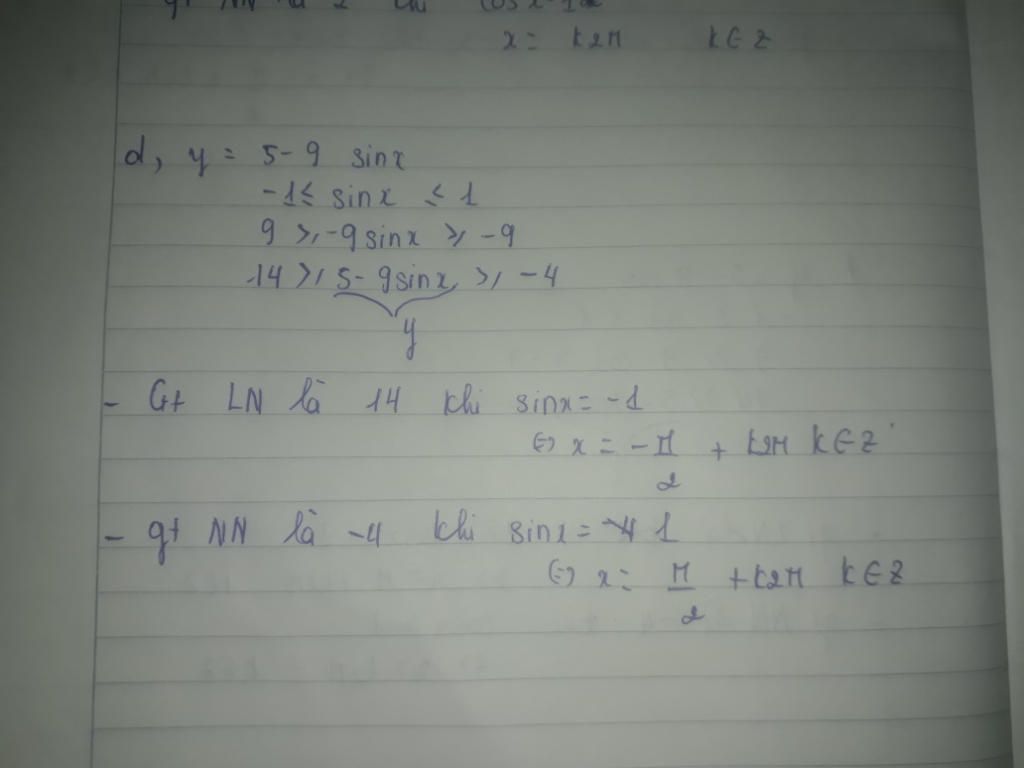 gt NN là 2 khi cosx=1
x = k2π k∈Z
d, y = 5-9 sinx
-1 ≤ sinx ≤ 1
9 ≥ -9sinx ≥ -9
14 ≥ 5-9sinx ≥ -4
y
- Gt LN là 14 khi sinx = -1
⇔ x = -π/2 + k2π k∈Z
- gt NN là -4 khi sinx = 1
⇔ x = π/2 + k2π k∈Z